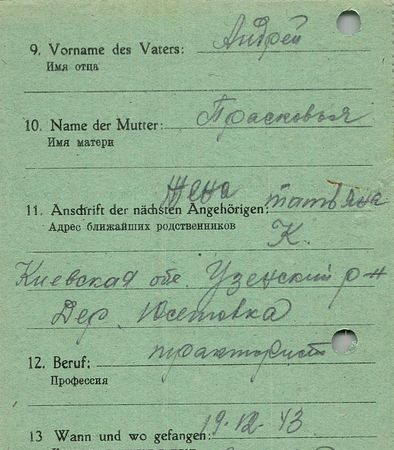 9. Vorname des Vaters: Андрей
Имя отца
10. Name der Mutter: Прасковья
Имя матери
Жена татьяна
11. Anschrift der nächsten Angehörigen:
Адрес ближайших родственников К.
Киевская обл. Узенский р-н
Дер. Юсеповка
12. Beruf: тракторист
Профессия
19.12.43
13 Wann und wo gefangen: